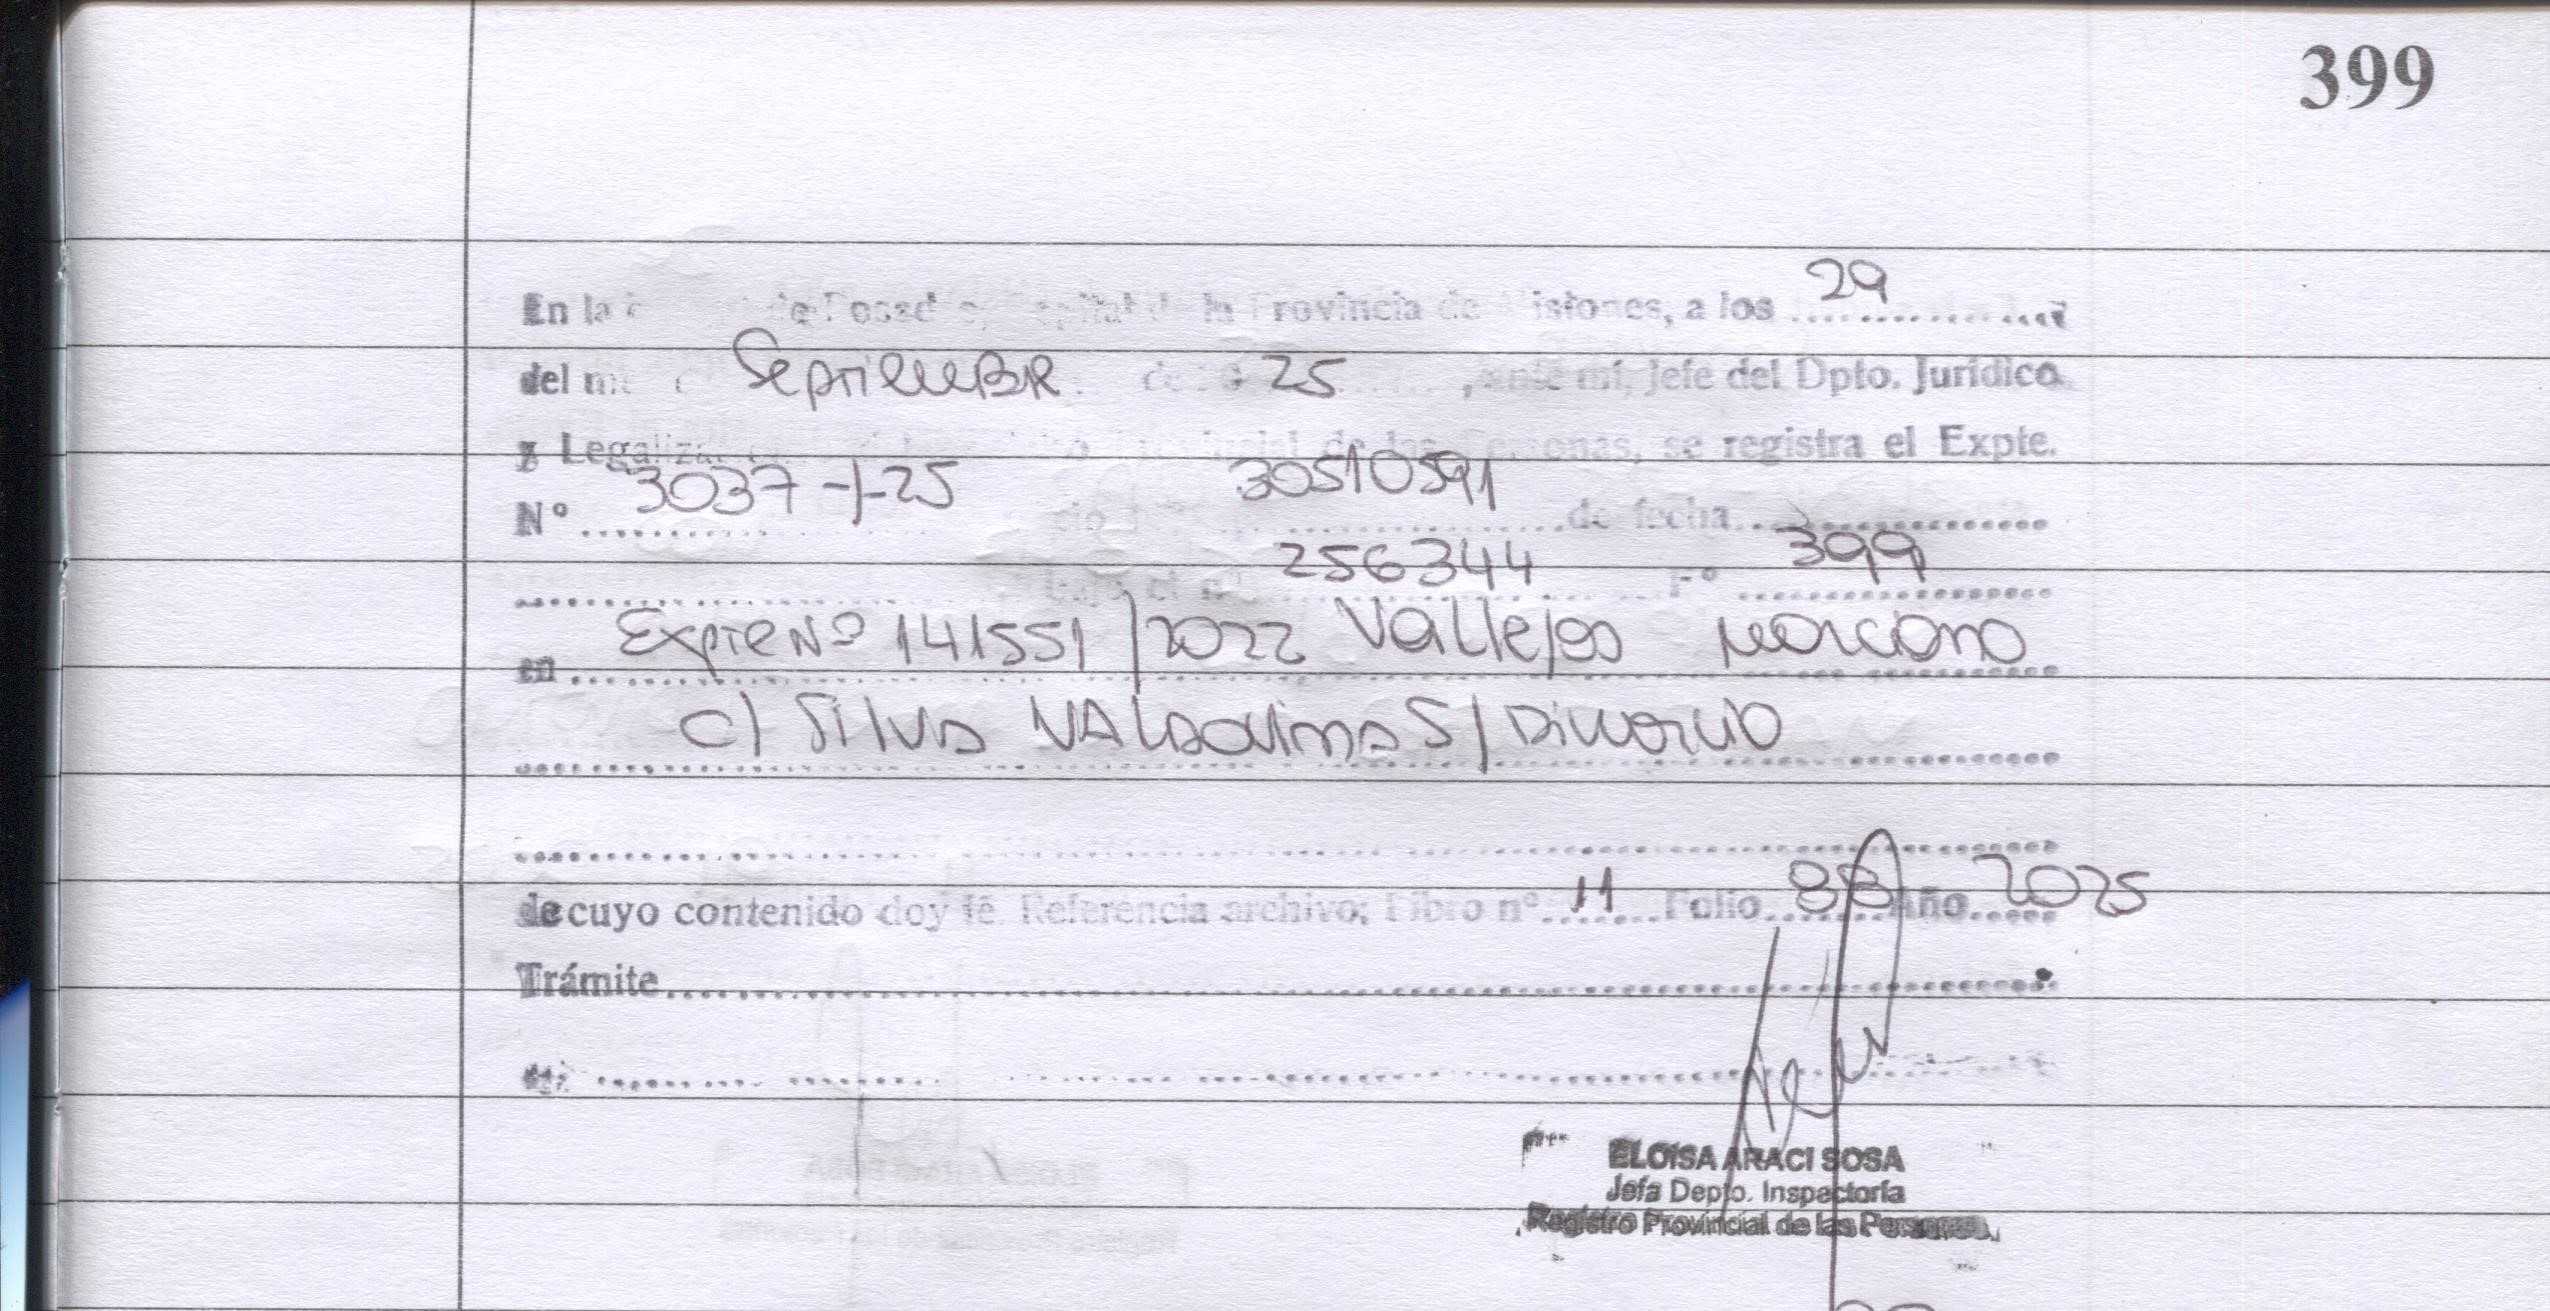 399
En la de Posad capital de la Provincia de Misiones, a los 29
del m Septiembr de 25 , ante mí, Jefe del Dpto. Jurídico
y Legaliza Provincial de las Personas, se registra el Expte.
Nº 3037-/-25 30510591 de fecha
bajo el nº 256344 Fº 399
en Expte Nº 141551/2022 Vallejos Marciano
c/ Silva S/ Divorcio
de cuyo contenido doy fé Referencia archivo; Libro nº 11 Folio 88 Año 2025
Trámite
ELOISA ARACI SOSA
Jefa Depto. Inspectoría
Registro Provincial de las Personas